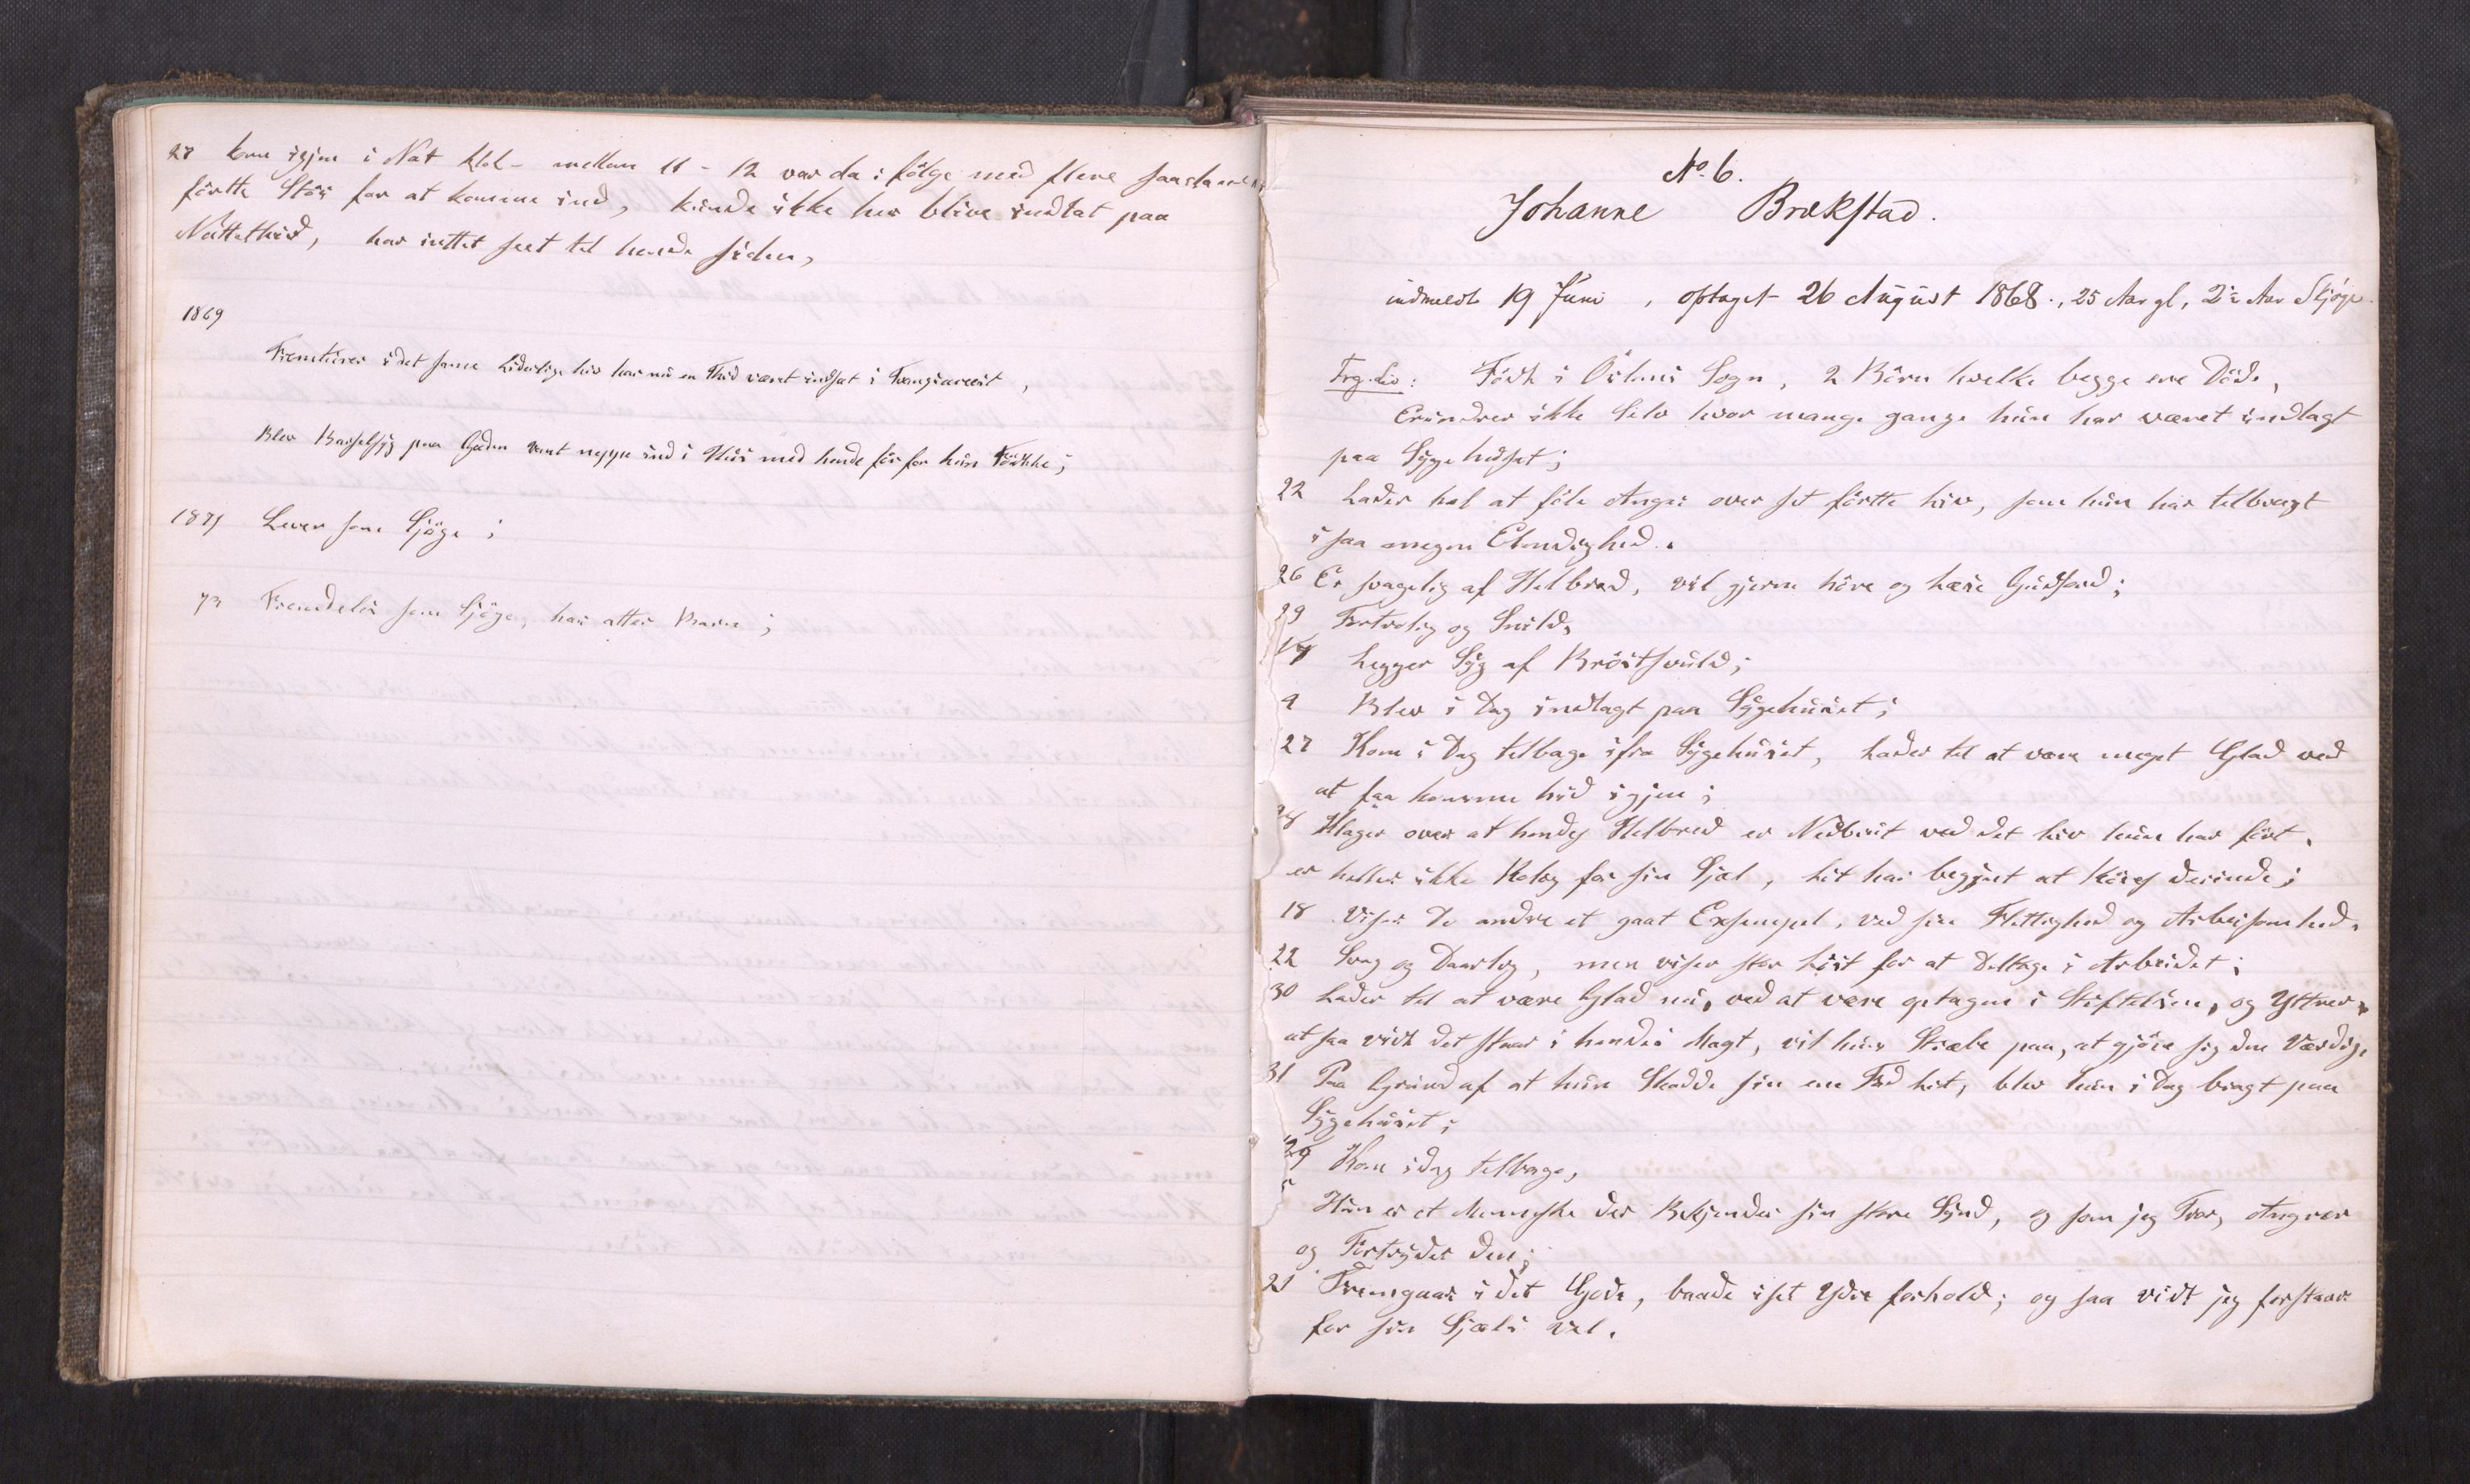 27 kom igjen i Nat Klok- mellem 11 - 12 var da i fölge med flere saadanne
förtte Stöi for at komme ind, kunde ikke her blive indlat paa
Nattethid, har inttet seet til hende siden,
1869
Fremturer i det same Liderlige liv har nu en Thid været indsat i Tvangsareist,
Blev Barselsyg paa Gaden vant neppe ind i Huus med hende för for hun Födthe;
1871 Lever som Sjöge;
73 Fremdeles som Sjöge, har atter Barn;
No. 6.
Johanne Brækstad.
indmeldt 19 Juni, optaget 26 August 1868., 25 Aar gl, 2½ Aar Skjöge.
Frg. Liv: Födt i Örlans Sogn, 2 Börn hvelke begge ere Döde,
Erundrer ikke Selv hvor mange gange hun har været indlagt
paa Sygehuset;
22 Lader tel at föle Anger over set förtte liv, som hun har telbragt
i saa megen Elendighed.
26 Er svagelig af Helbred, vil gjerne höre og Læse Gudsord;
29 Fortrolig og Snild,
14 Legger Syg af Bröstsvuld;
9 Blev i Dag indlagt paa Sygehuset;
27 Kom i Dag telbage ifra Sygehuset, Lader tel at være meget Glad ved
at faa komme hid igjen;
28 Klager over at hendes Helbred er Nedbrut ved det liv hun har fört.
er heller ikke Rolog for sin Sjæl, Lit har begynt at Röres derinde;
18 Viser De andre et gaat Exsempel, ved sin Flittighed og Arbeisomhed.
22 Svag og Daarlig, men viser stor Löst for at Deltage i Arbeidet;
30 Lader tel at være Glad nu, ved at være optagen i Stiftelsen, og Yttrer,
at saa vidt det staar i hendes Magt, vil hun Stræbe paa, at gjöre sig den Værdig,
31 Paa Grund af at hun Skadde sin ene Fod lit, blev hun i Dag bragt paa
Sygehuset;
29 Kom i dag telbage,
5 Hun er et Menneske der Bekjender sin store Synd, og som jeg Tror, Angrer
og Fortryder den;
21 Fremgaar i det Gode, baade i set Ydre forhold; og saa vidt jeg forstaar
for sin Sjæls vel.